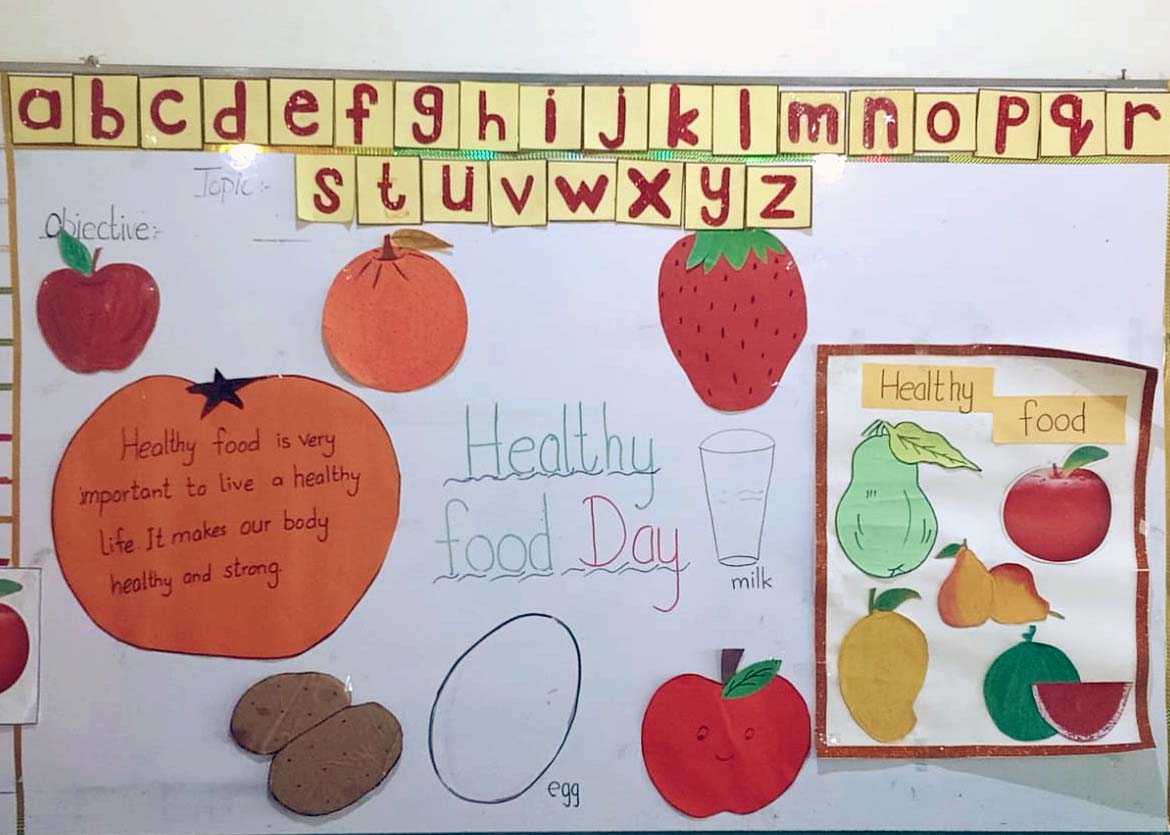 a b c d e f g h i j k l m n o p q r
s t u v w x y z
Topic:-
Objective:-
Healthy food is very
important to live a healthy
life. It makes our body
healthy and strong.
Healthy
food Day
milk
egg
Healthy
food